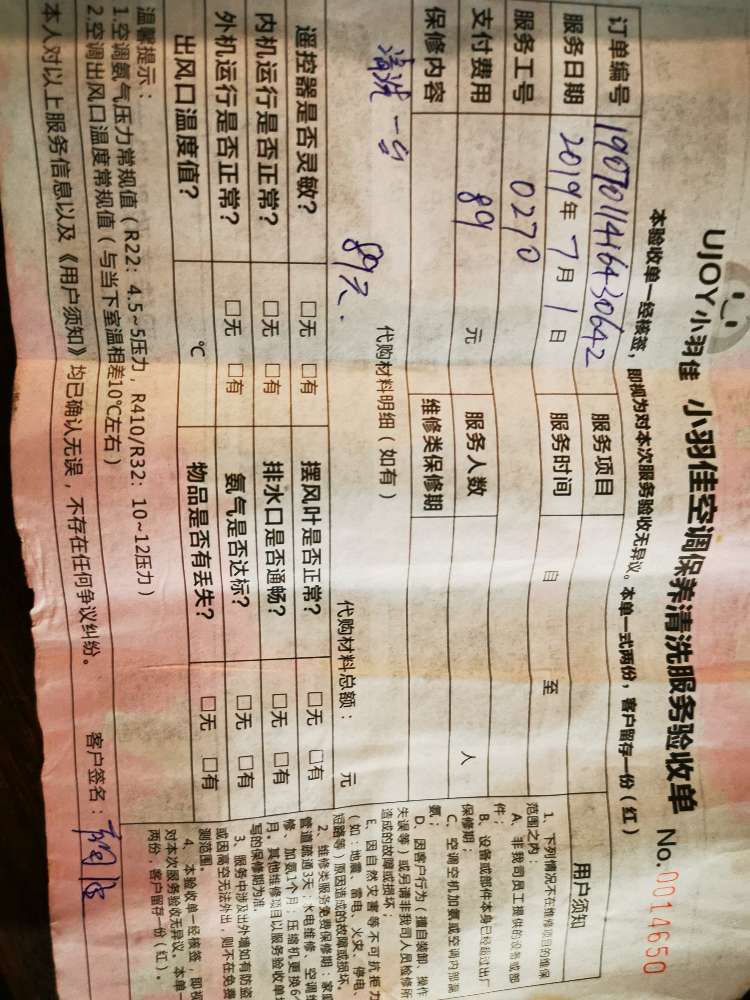 UJOY小羽佳 小羽佳空调保养清洗服务验收单 No.0014650
本验收单一经核签，即视为对本次服务验收无异议。本单一式两份，客户留存一份（红）
订单编号 1907011416430642 服务项目
服务日期 2019年7月1日 服务时间 自 至
服务工号 0270
支付费用 89 元 服务人数 人
保修内容 维修类保修期
清洗一台 89元.
代购材料明细（如有） 代购材料总额： 元
遥控器是否灵敏？ □无 □有 摆风叶是否正常？ □无 □有
内机运行是否正常？ □无 □有 排水口是否通畅？ □无 □有
外机运行是否正常？ □无 □有 氨气是否达标？ □无 □有
出风口温度值？ ℃ 物品是否有丢失？ □无 □有
温馨提示：
1.空调氨气压力常规值（R22：4.5~5压力，R410/R32：10~12压力）
2.空调出风口温度常规值（与当下室温相差10℃左右）
本人对以上服务信息以及《用户须知》均已确认无误，不存在任何争议纠纷。 客户签名：
用户须知
1、下列情况不在维修项目的维保
范围之内：
A、非我司员工提供的设备或部
件；
B、设备或部件本身已经超过出厂
保修期；
C、空调空机加氨或空调内部漏
氨；
D、因客户行为（擅自装卸、操作
失误等）或另请非我司人员检修所
造成的故障或损坏；
E、因自然灾害等不可抗拒力
（如：地震、雷电、火灾、停电、
短路等）原因造成的故障或损坏。
2、维修类服务免费保修期：家庭
管道疏通3天；水电维修、空调维
修、加氨1个月；压缩机更换6个
月。其他维修项目以服务验收单填
写的保修期为准。
3、服务中涉及出外墙如有防盗
或因高空无法外出，则不在免费
测范围。
4、本验收单一经核签，即视
对本次服务验收无异议。本单一
两份，客户留存一份（红）。